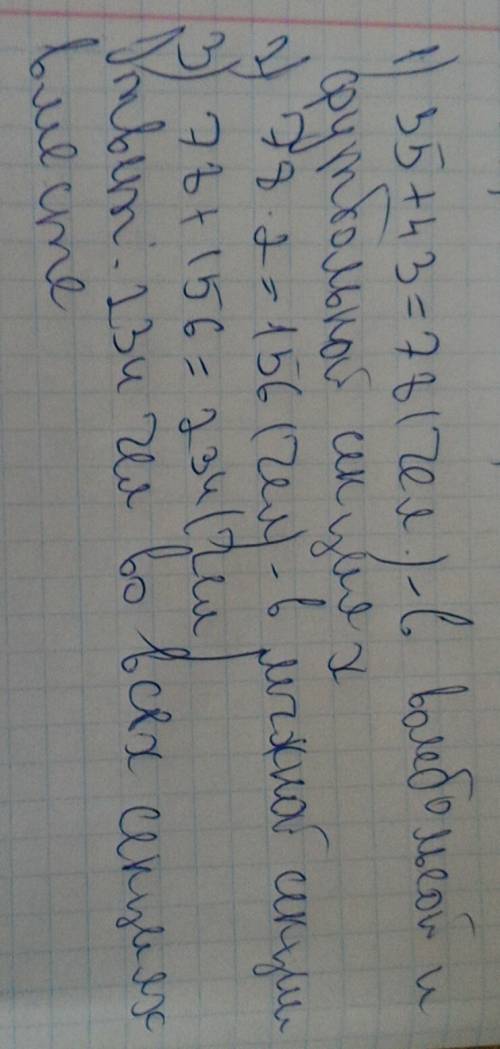 1) 35+43=78(чел.)-в волебольной и
футбольной секциях
2) 78·2=156(чел)-в лыжной секции
3) 78+156=234(чел)
Ответ: 234 чел во всех секциях
вместе